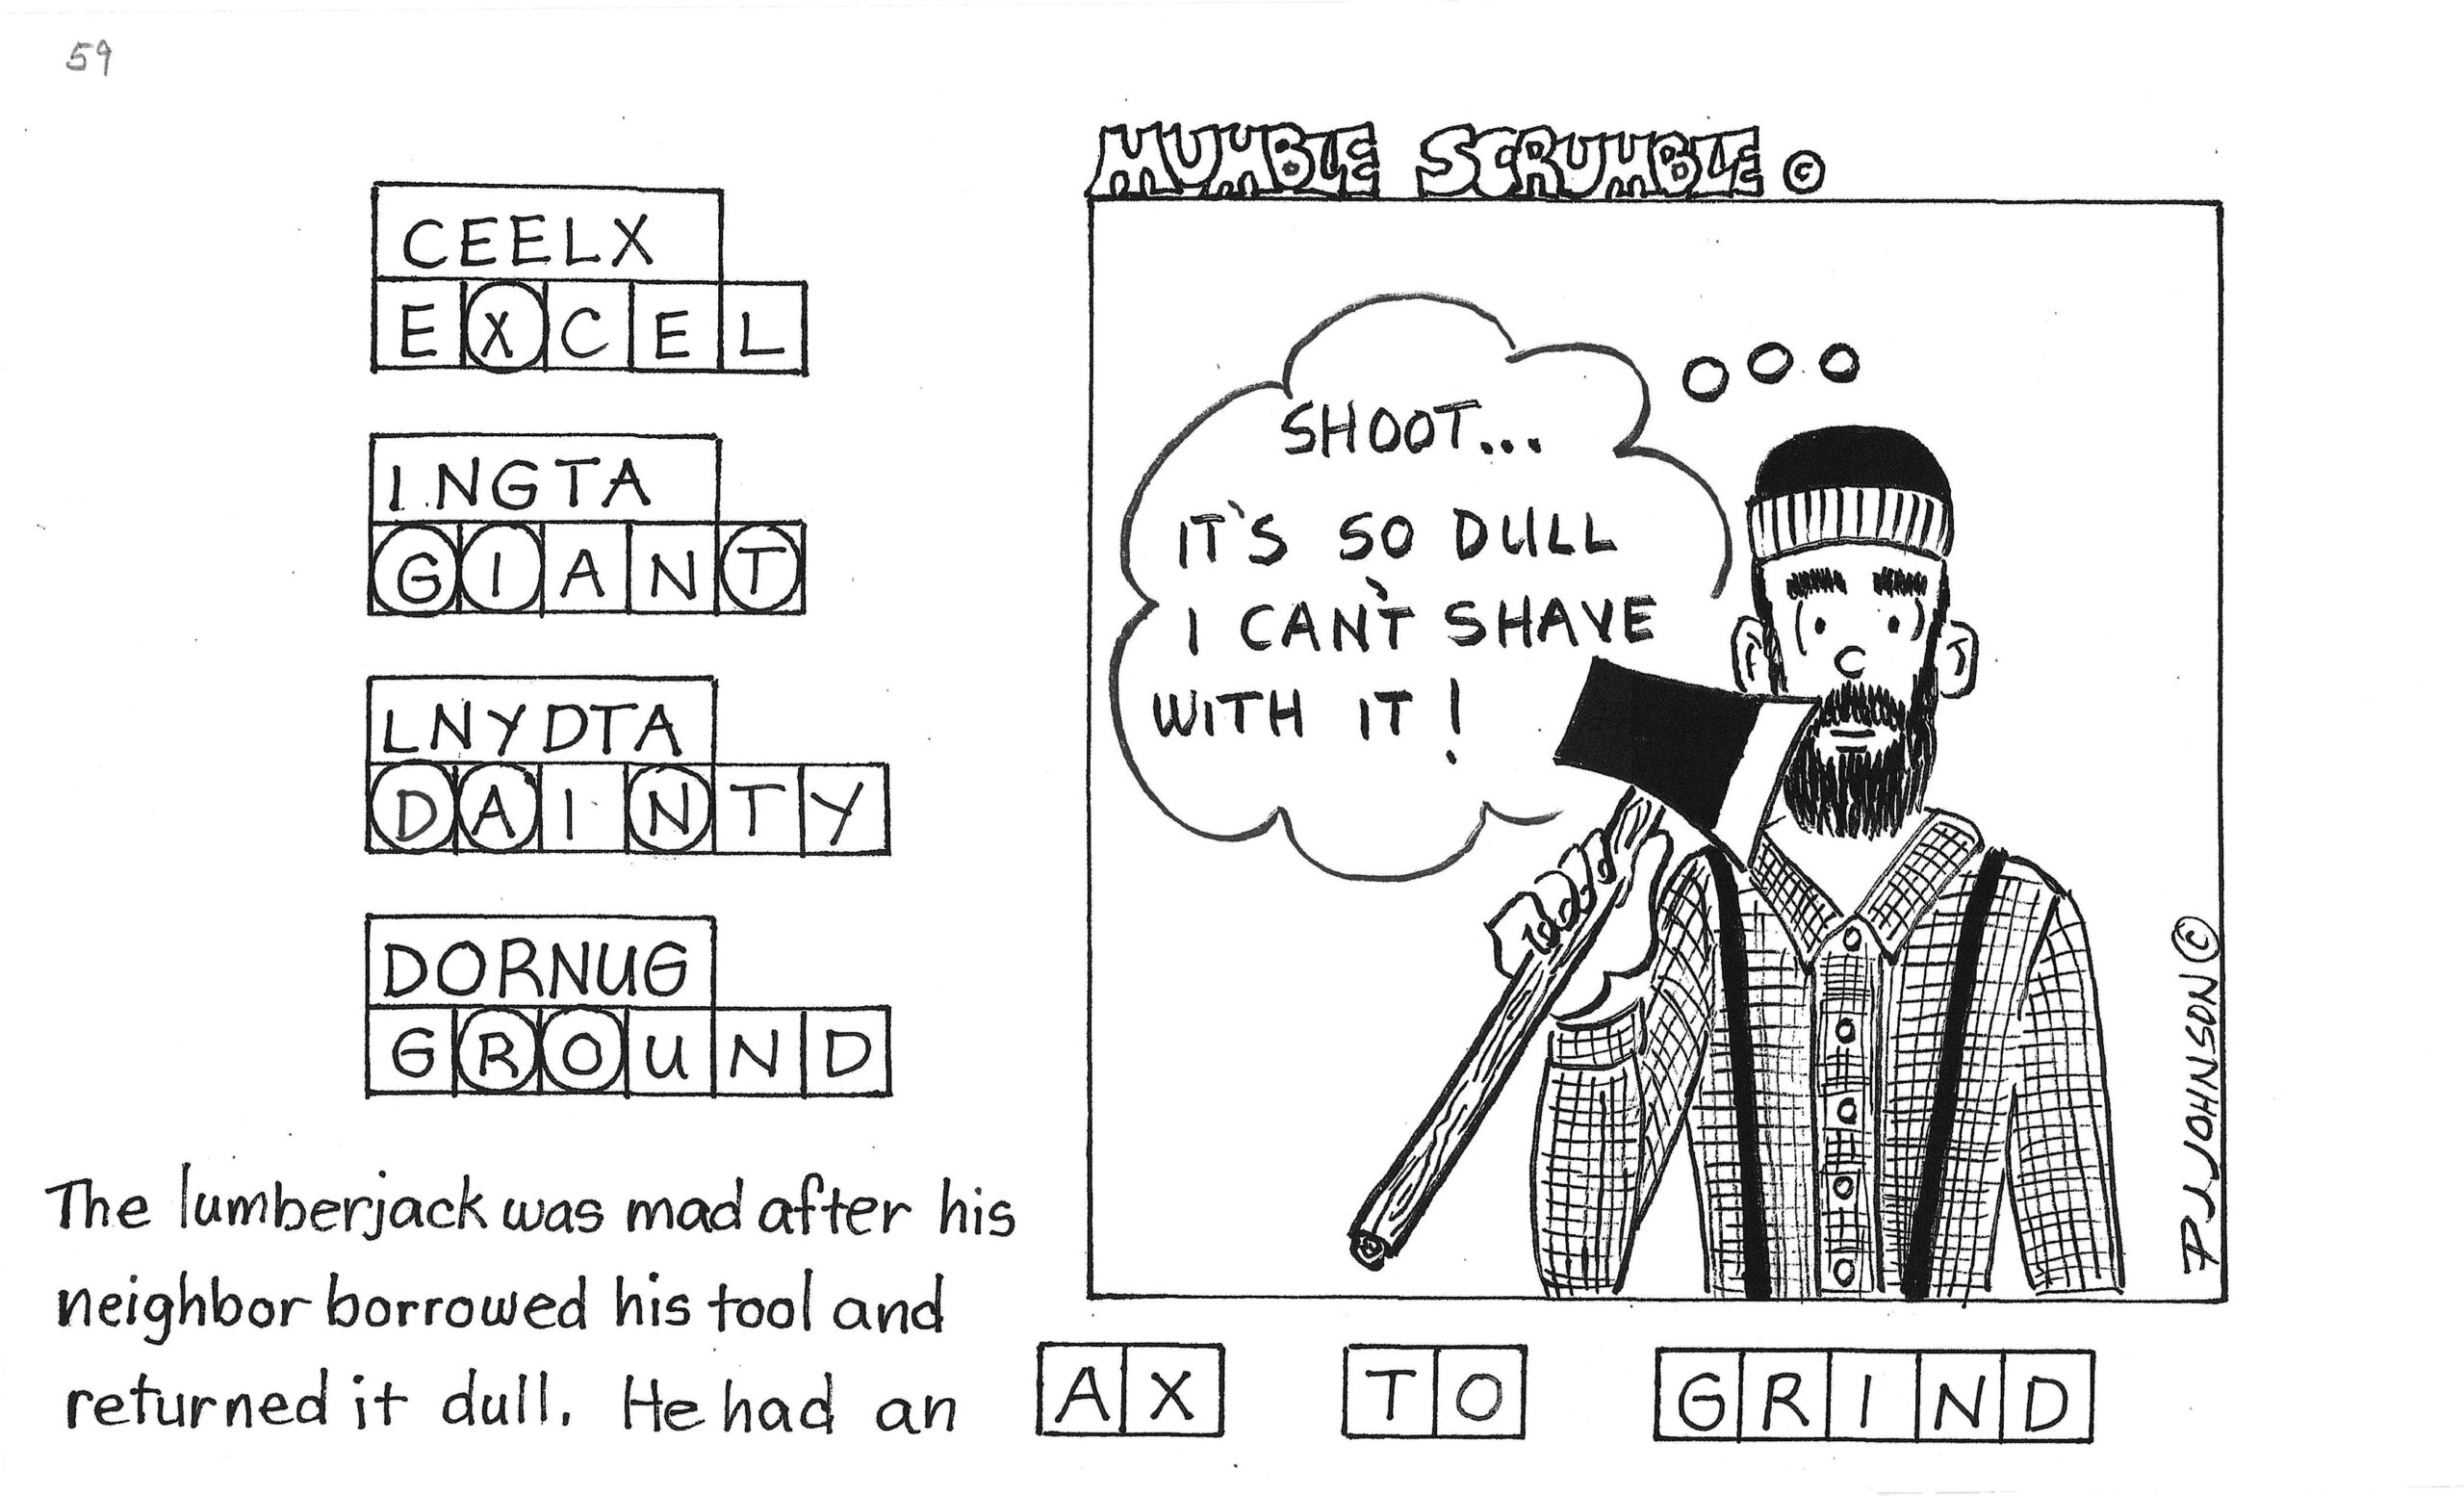 59
MUMBLE SCRUMBLE ©
CEELX
EXCEL
INGTA
GIANT
LNYDTA
DAINTY
DORNUG
GROUND
SHOOT...
IT'S SO DULL
I CAN'T SHAVE
WITH IT!
PJ JOHNSON ©
The lumberjack was mad after his
neighbor borrowed his tool and
returned it dull. He had an AX TO GRIND